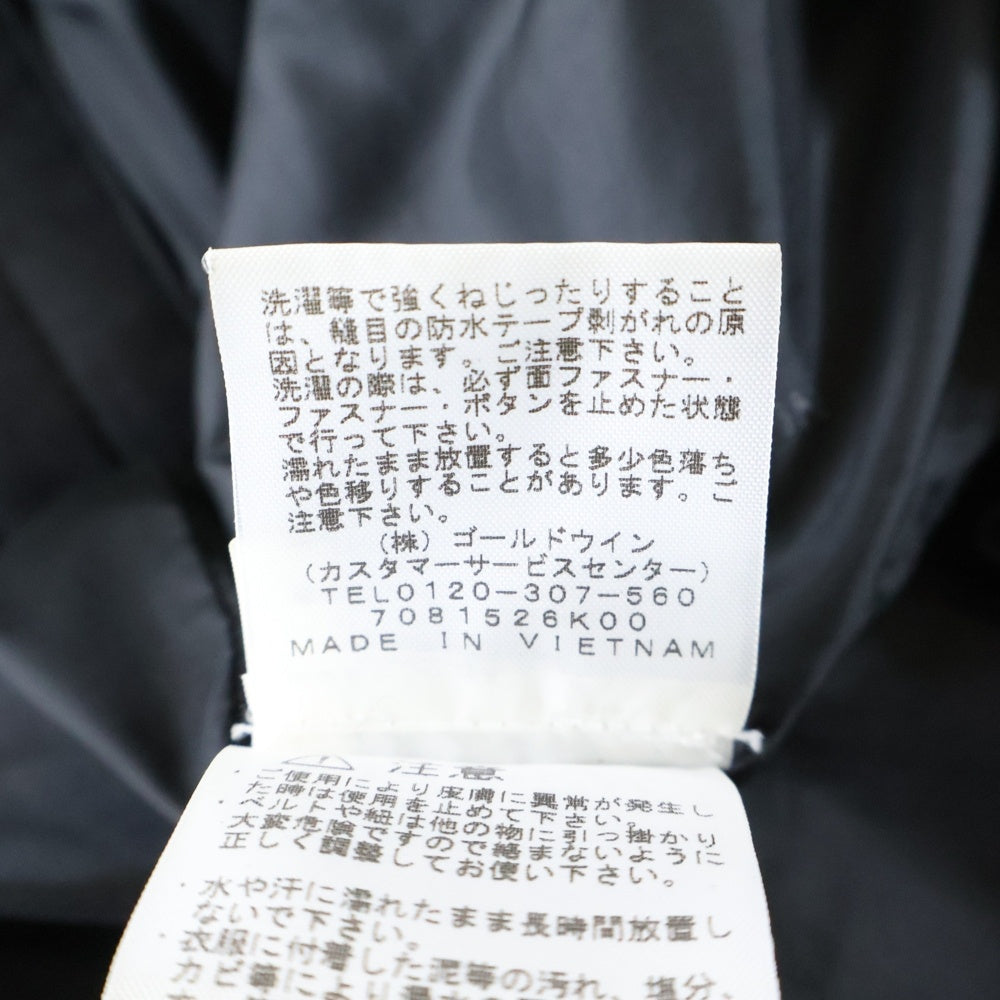 洗濯等で強くねじったりすること
は、縫目の防水テープ剥がれの原
因となります。ご注意下さい。
洗濯の際は、必ず面ファスナー・
ファスナー・ボタンを止めた状態
で行って下さい。
濡れたまま放置すると多少色落ち
や色移りすることがあります。ご
注意下さい。
(株) ゴールドウイン
(カスタマーサービスセンター)
TEL0120-307-560
7081526K00
MADE IN VIETNAM
注意
・ご使用により皮膚に異常が発生し
た時は使用を止めて下さい。
・ベルトや紐は他の物に引っ掛かり
大変危険ですので絡まないように
正しく調整してお使い下さい。
・水や汗に濡れたまま長時間放置し
ないで下さい。
・衣服に付着した泥等の汚れ、塩分、
カビ等により